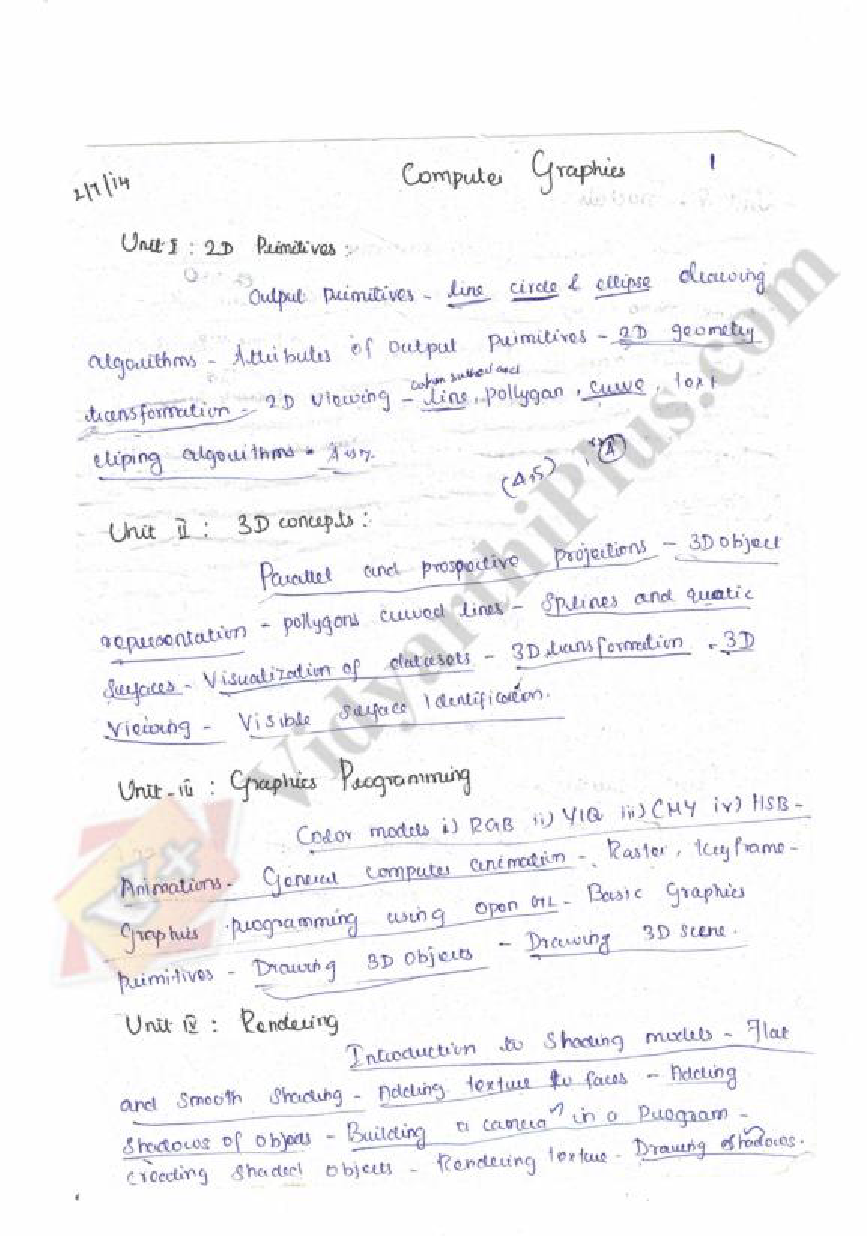 2/7/14 Computer Graphics 1
Unit I : 2D Primitives :
Output primitives - line circle & ellipse drawing
algorithms - Attributes of output primitives - 2D geometry
transformation - 2D viewing - line, pollygan, curve, text
cliping algorithms -
(A5) (A)
Unit II : 3D concepts :
Parallel and prospective projections - 3D object
representation - pollygons curved lines - Splines and quatic
surfaces - Visualization of datasets - 3D transformation - 3D
Viewing - Visible surface Identification.
Unit - III : Graphics Programming
Color models i) RGB ii) YIQ iii) CMY iv) HSB -
Animations - General computer animation - Raster, Keyframe -
Graphics programming using open GL - Basic Graphics
primitives - Drawing 3D objects - Drawing 3D scene.
Unit IV : Rendering
Introduction to Shading models - Flat
and smooth shading - Adding texture to faces - Adding
shadows of objects - Building a camera in a Program -
creating shaded objects - Rendering texture - Drawing shadows.
VidyarthiPlus.com
V+